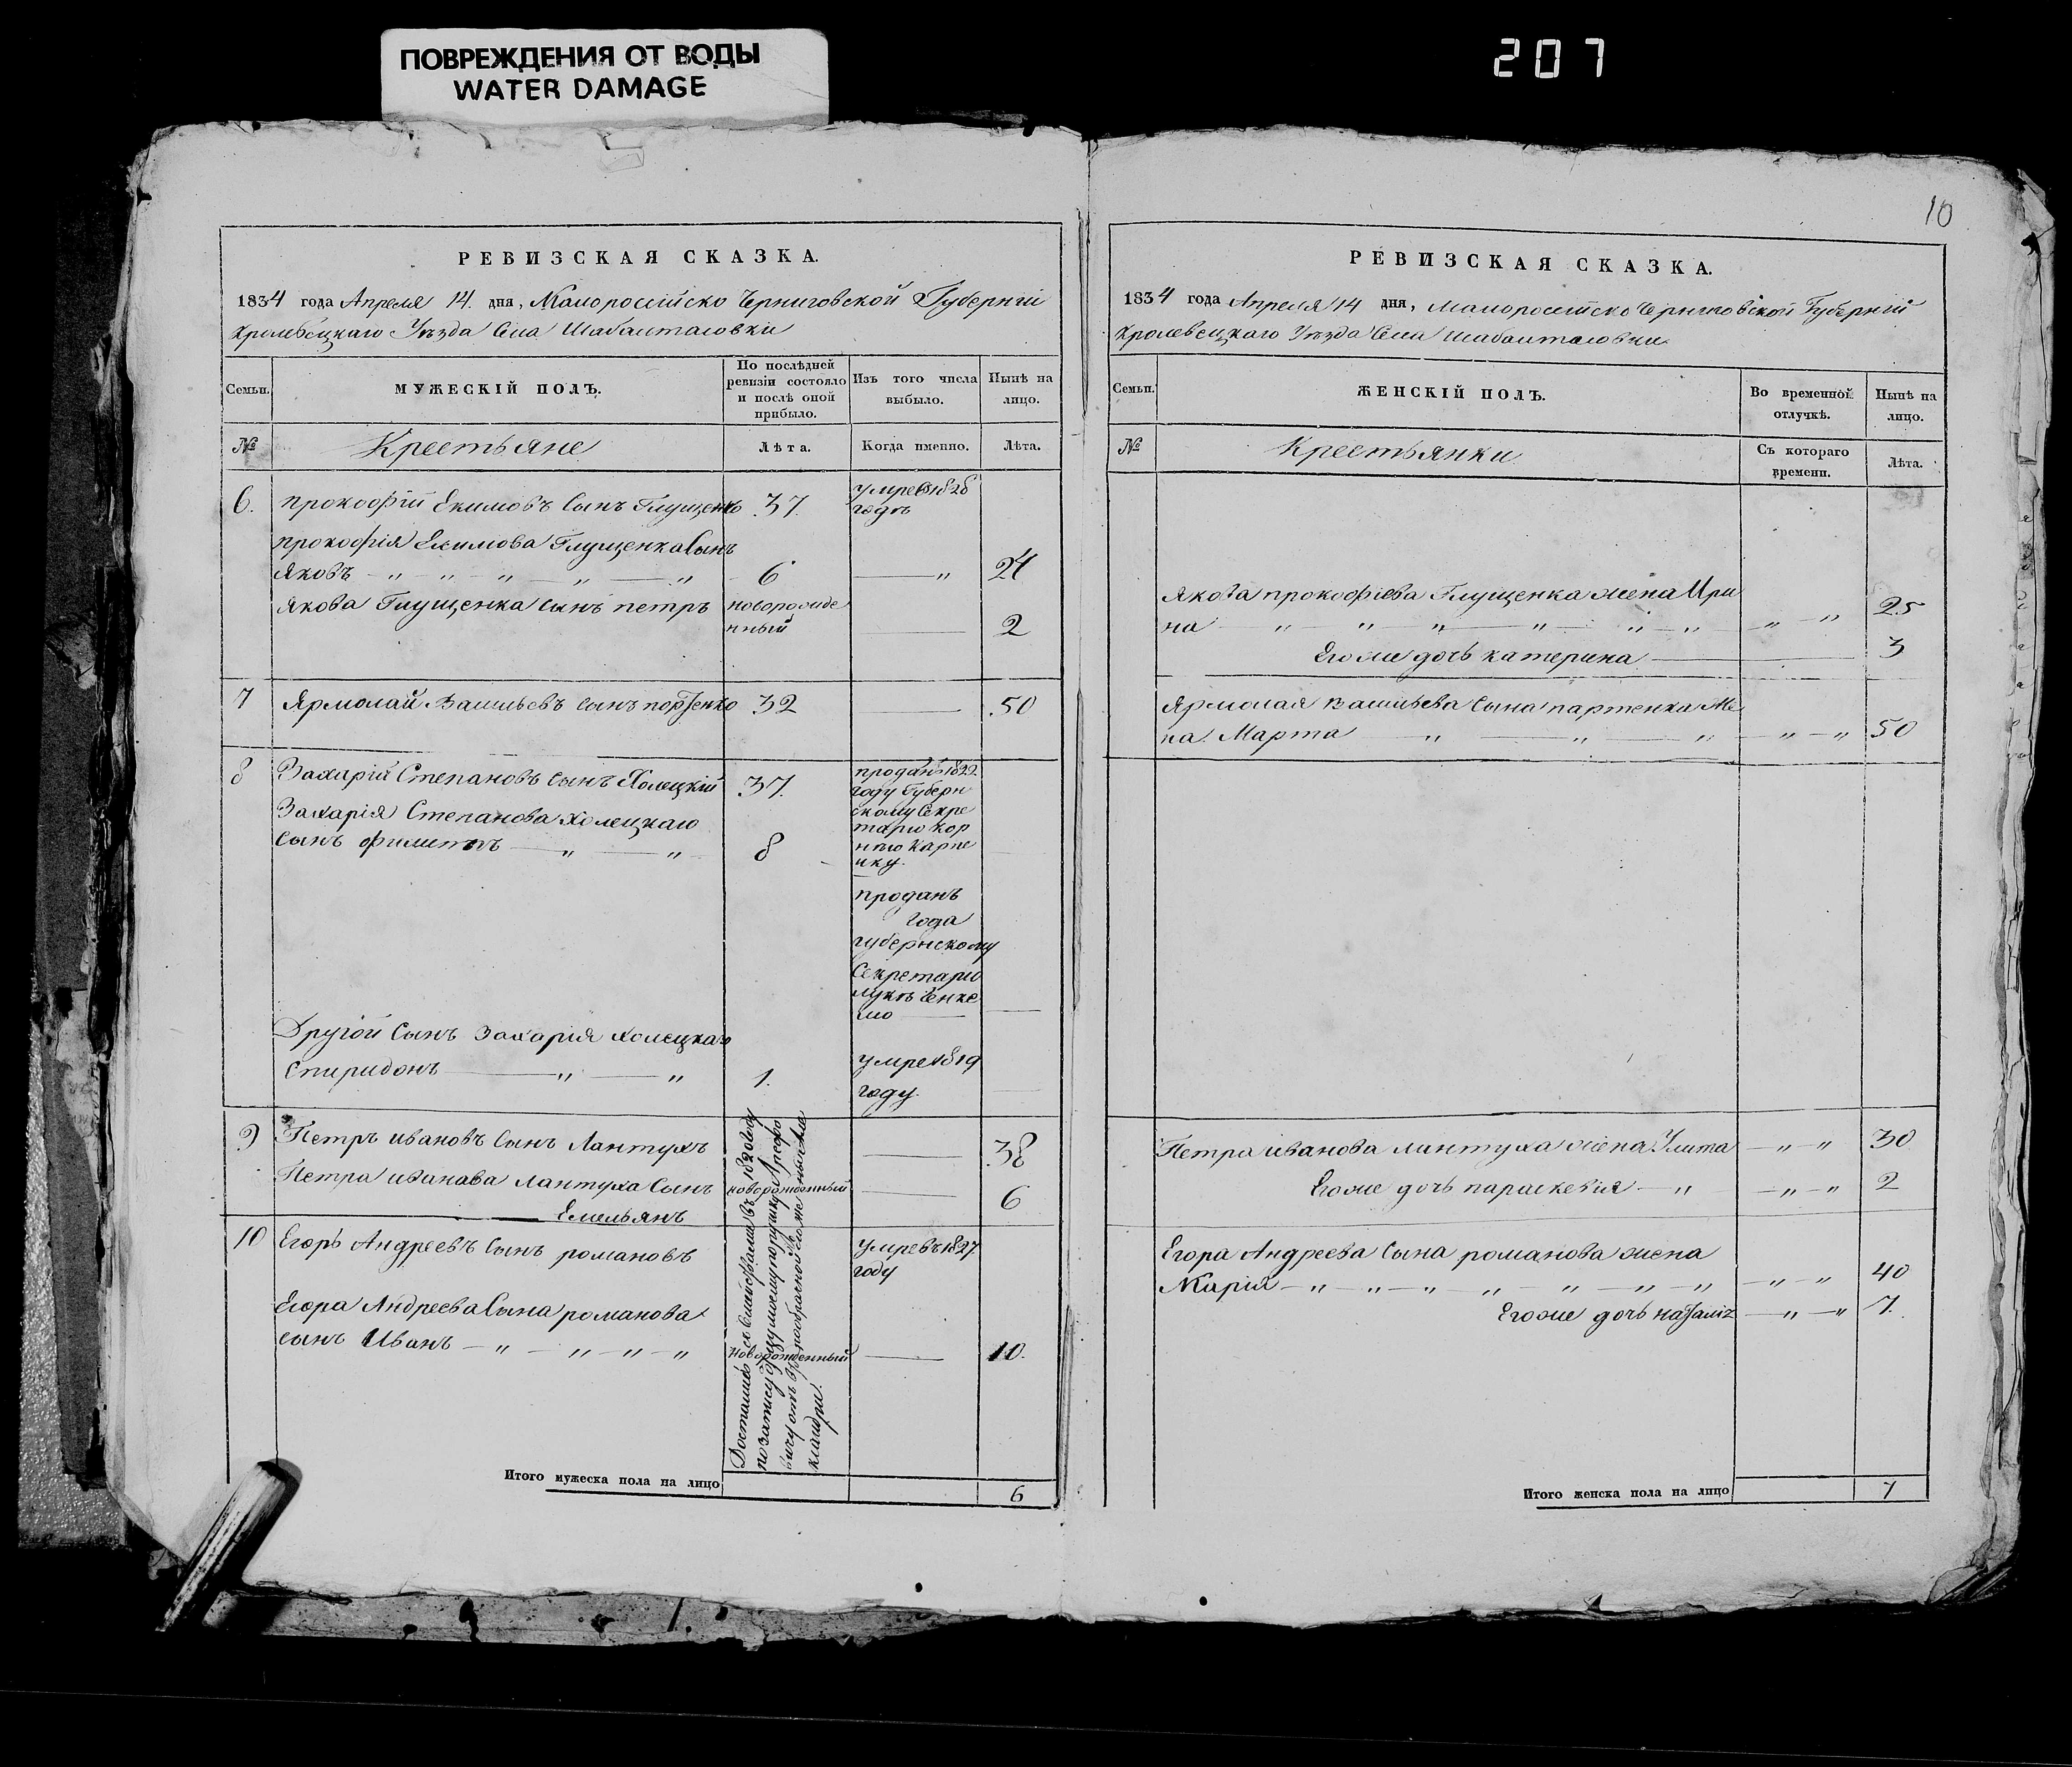 ПОВРЕЖДЕНИЯ ОТ ВОДЫ
WATER DAMAGE
207
РЕВИЗСКАЯ СКАЗКА.
1834 года Апреля 14. дня, Малоросійско Черниговской Губерніи
Кролевецкаго Уѣзда Села Шабалтасовки
Семьи.
МУЖЕСКІЙ ПОЛЪ.
По послѣдней
ревизіи состояло
и послѣ оной
прибыло.
Изъ того числа
выбыло.
Нынѣ на
лицо.
№
Крестьяне
Лѣта.
Когда именно.
Лѣта.
6. прокофій Екимовъ Сынъ Глущенко 37.
умре 1828
годъ
прокофія Екимова Глущенка Сынъ
Яковъ — „ — „ — „ — „ — „ 6 — „ 24
Якова Глущенка сынъ петръ новорожде
нный — 2
7 Ярмолай Васильевъ сынъ портенко 32 — 50
8 Захарій Степановъ сынъ Холецкій 37.
проданъ 1822
году Губерн
скому Секре
тарю Кор
нѣю Карпе
нку.
Захарія Степанова Холецкаго
сынъ филиппъ — „ — „ 8
проданъ
года
губернскому
Секретарю
лукѣ
Другой Сынъ Захарія холецкаго
Спиридонъ — „ — „ 1.
умре 1819
году.
9 Петръ ивановъ Сынъ Лантухъ — 38
Петра иванова Лантуха Сынъ новорожденный — 6
Емельянъ
10 Егоръ Андреевъ Сынъ романовъ
умре въ 1827
году
Егора Андреева Сына романова
сынъ Иванъ — „ — „ — „ — „ новорожденный — 10.
Достались съ семействами въ 1820 году
Итого мужеска пола на лицо 6
10
РЕВИЗСКАЯ СКАЗКА.
1834 года Апреля 14 дня, Малоросійско Черниговской Губерній
Кролевецкаго Уѣзда Села Шабалтасовки
Семьи.
ЖЕНСКІЙ ПОЛЪ.
Во временной
отлучкѣ.
Нынѣ на
лицо.
№
Крестьянки
Съ котораго
времени.
Лѣта.
Якова прокофіева Глущенка жена Ири
на — „ — „ — „ — „ — „ — „ — „ — „ 25
Егоже дочь катерина — 3
Ярмолая васильева Сына партенка Же
на Марта — „ — „ — „ — „ — „ 50
Петра иванова лантуха жена Улита — „ — „ 30
Егоже дочь параскевія — „ — „ — „ 2
Егора Андреева Сына романова жена
Марія — „ — „ — „ — „ — „ — „ — „ — „ — „ 40
Егоже дочь — „ — „ 7.
Итого женска пола на лицо 7